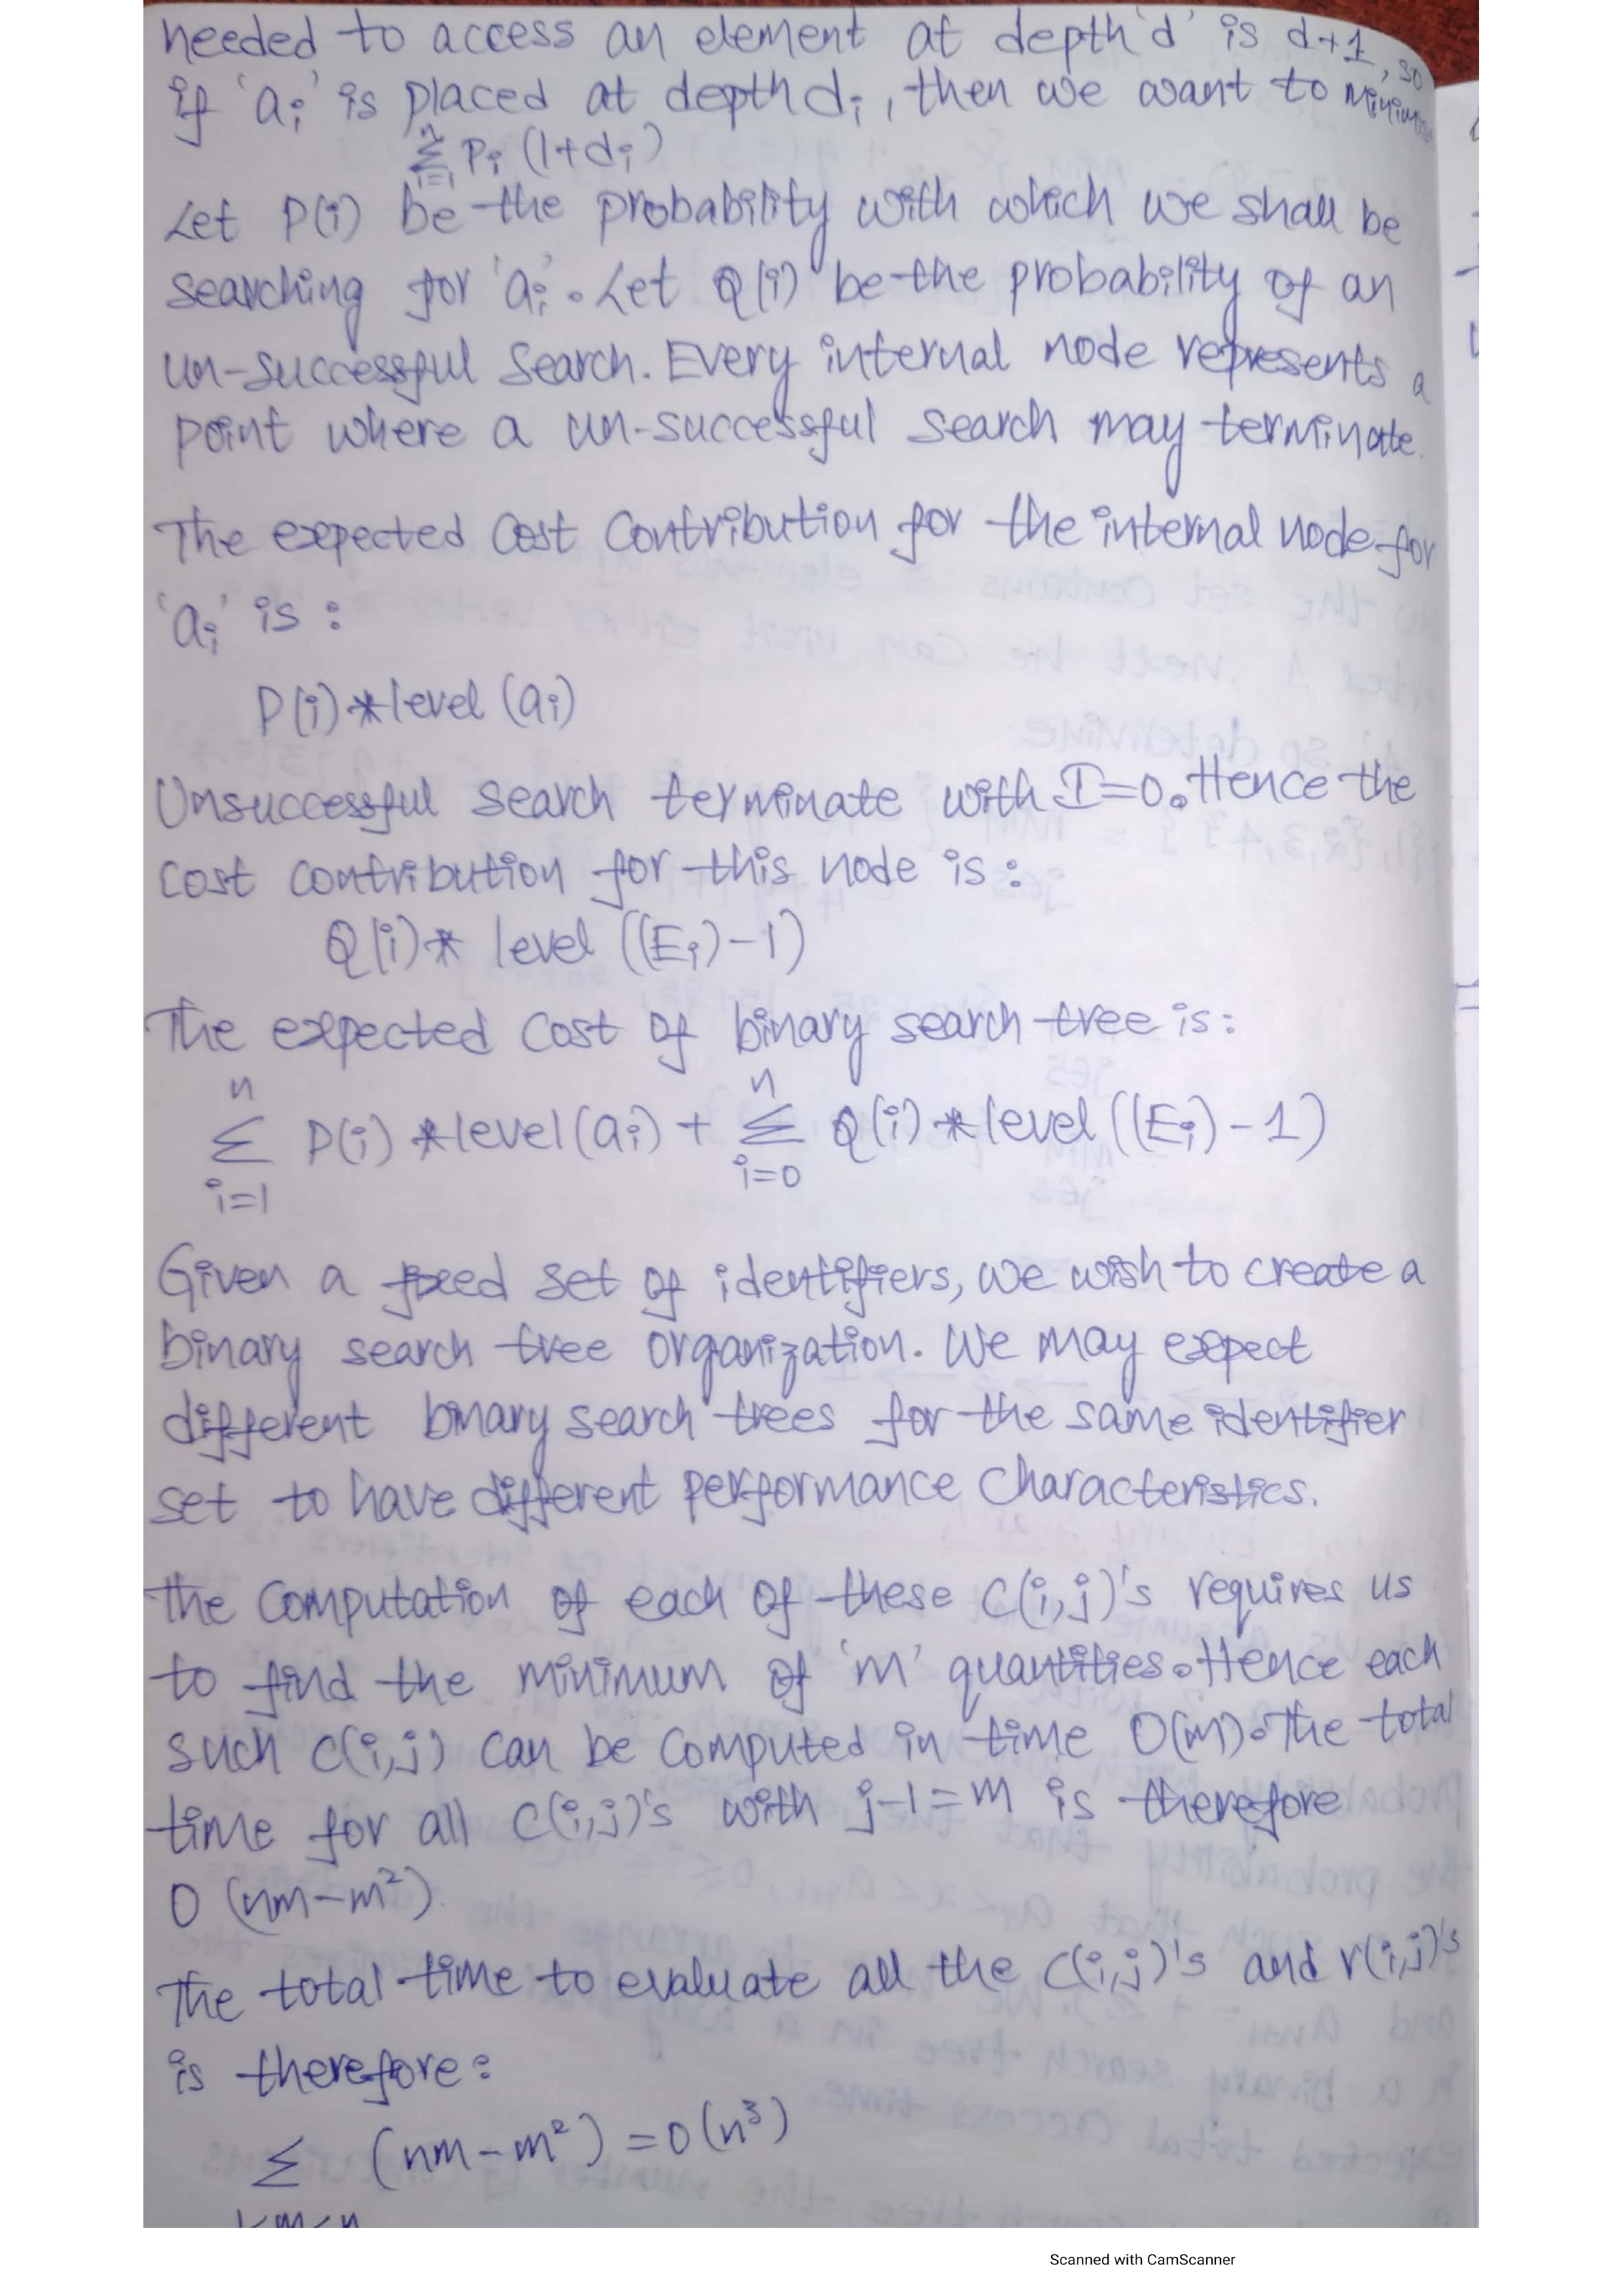 needed to access an element at depth 'd' is d+1, so
if 'ai' is placed at depth di, then we want to
n
Σ Pi (1+di)
i=1
Let P(i) be the probability with which we shall be
searching for 'ai'. Let Q(i) be the probability of an
un-successful search. Every internal node represents a
point where a un-successful search may terminate.
The expected cost contribution for the internal node for
'ai' is :
P(i)*level (ai)
Unsuccessful search terminate with I=0. Hence the
cost contribution for this node is :
Q(i)* level ((Ei)-1)
The expected cost of binary search tree is:
n n
Σ P(i) *level(ai) + Σ Q(i) *level ((Ei)-1)
i=1 i=0
Given a fixed set of identifiers, we wish to create a
binary search tree organization. We may expect
different binary search trees for the same identifier
set to have different performance characteristics.
The computation of each of these C(i,j)'s requires us
to find the minimum of 'm' quantities. Hence each
such C(i,j) can be computed in time O(m). The total
time for all C(i,j)'s with j-1=m is therefore
O (nm-m²)
The total time to evaluate all the C(i,j)'s and r(i,j)'s
is therefore:
Σ (nm-m²) = O(n³)
Scanned with CamScanner